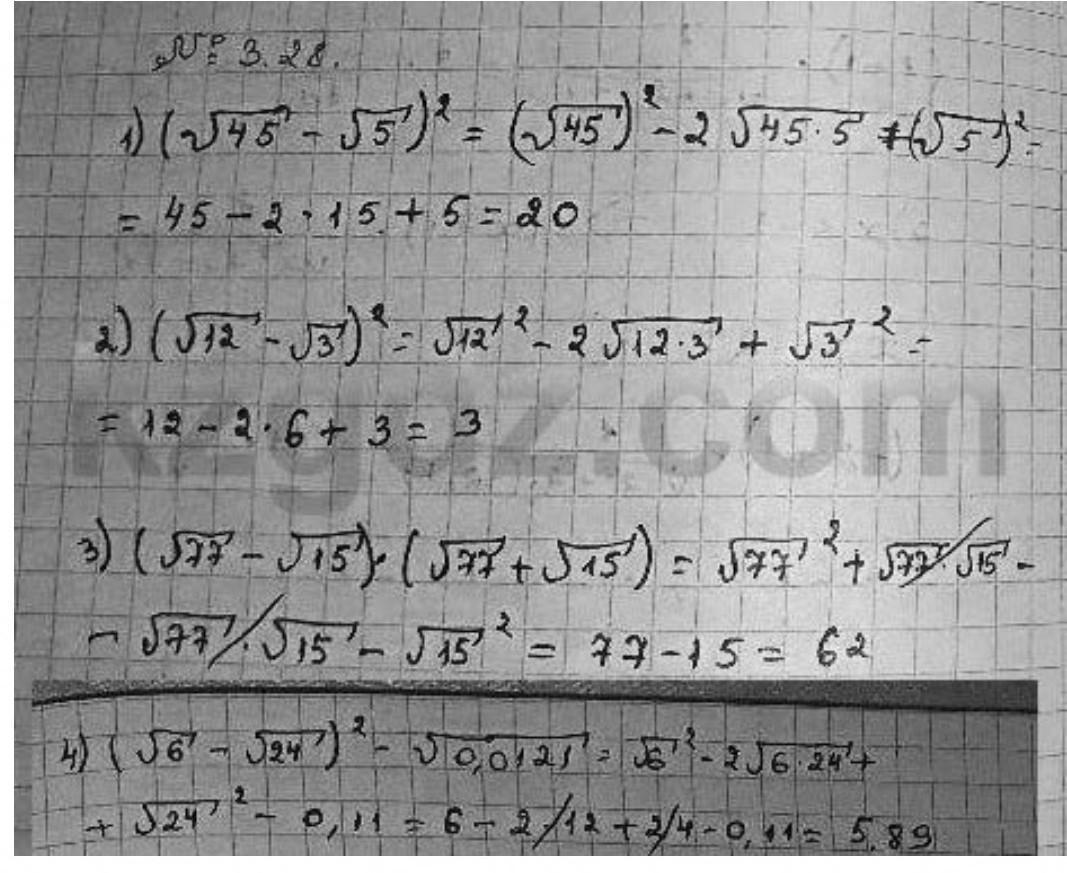 № 3.28.
1) (√45 - √5)² = (√45)² - 2√45·5 + (√5)² =
= 45 - 2·15 + 5 = 20
2) (√12 - √3)² = √12² - 2√12·3 + √3² =
= 12 - 2·6 + 3 = 3
kzgdz.com
3) (√77 - √15)·(√77 + √15) = √77² + √77·√15 -
- √77·√15 - √15² = 77 - 15 = 62
4) (√6 - √24)² - √0,0121 = √6² - 2√6·24 +
+ √24² - 0,11 = 6 - 2/12 + 2/4 - 0,11 = 5.89